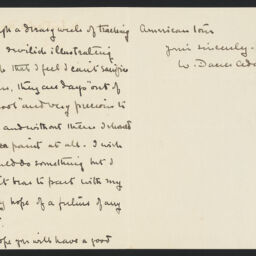 a dreary week of teaching
devilish illustrating
that I feel I can't sacrifice
they are days "out of
and very precious to
and without them I should
paint at all. I wish
do something but I
bear to part with my
hope of a future of any
you will have a good
American tour
Yours sincerely.
W. Davis